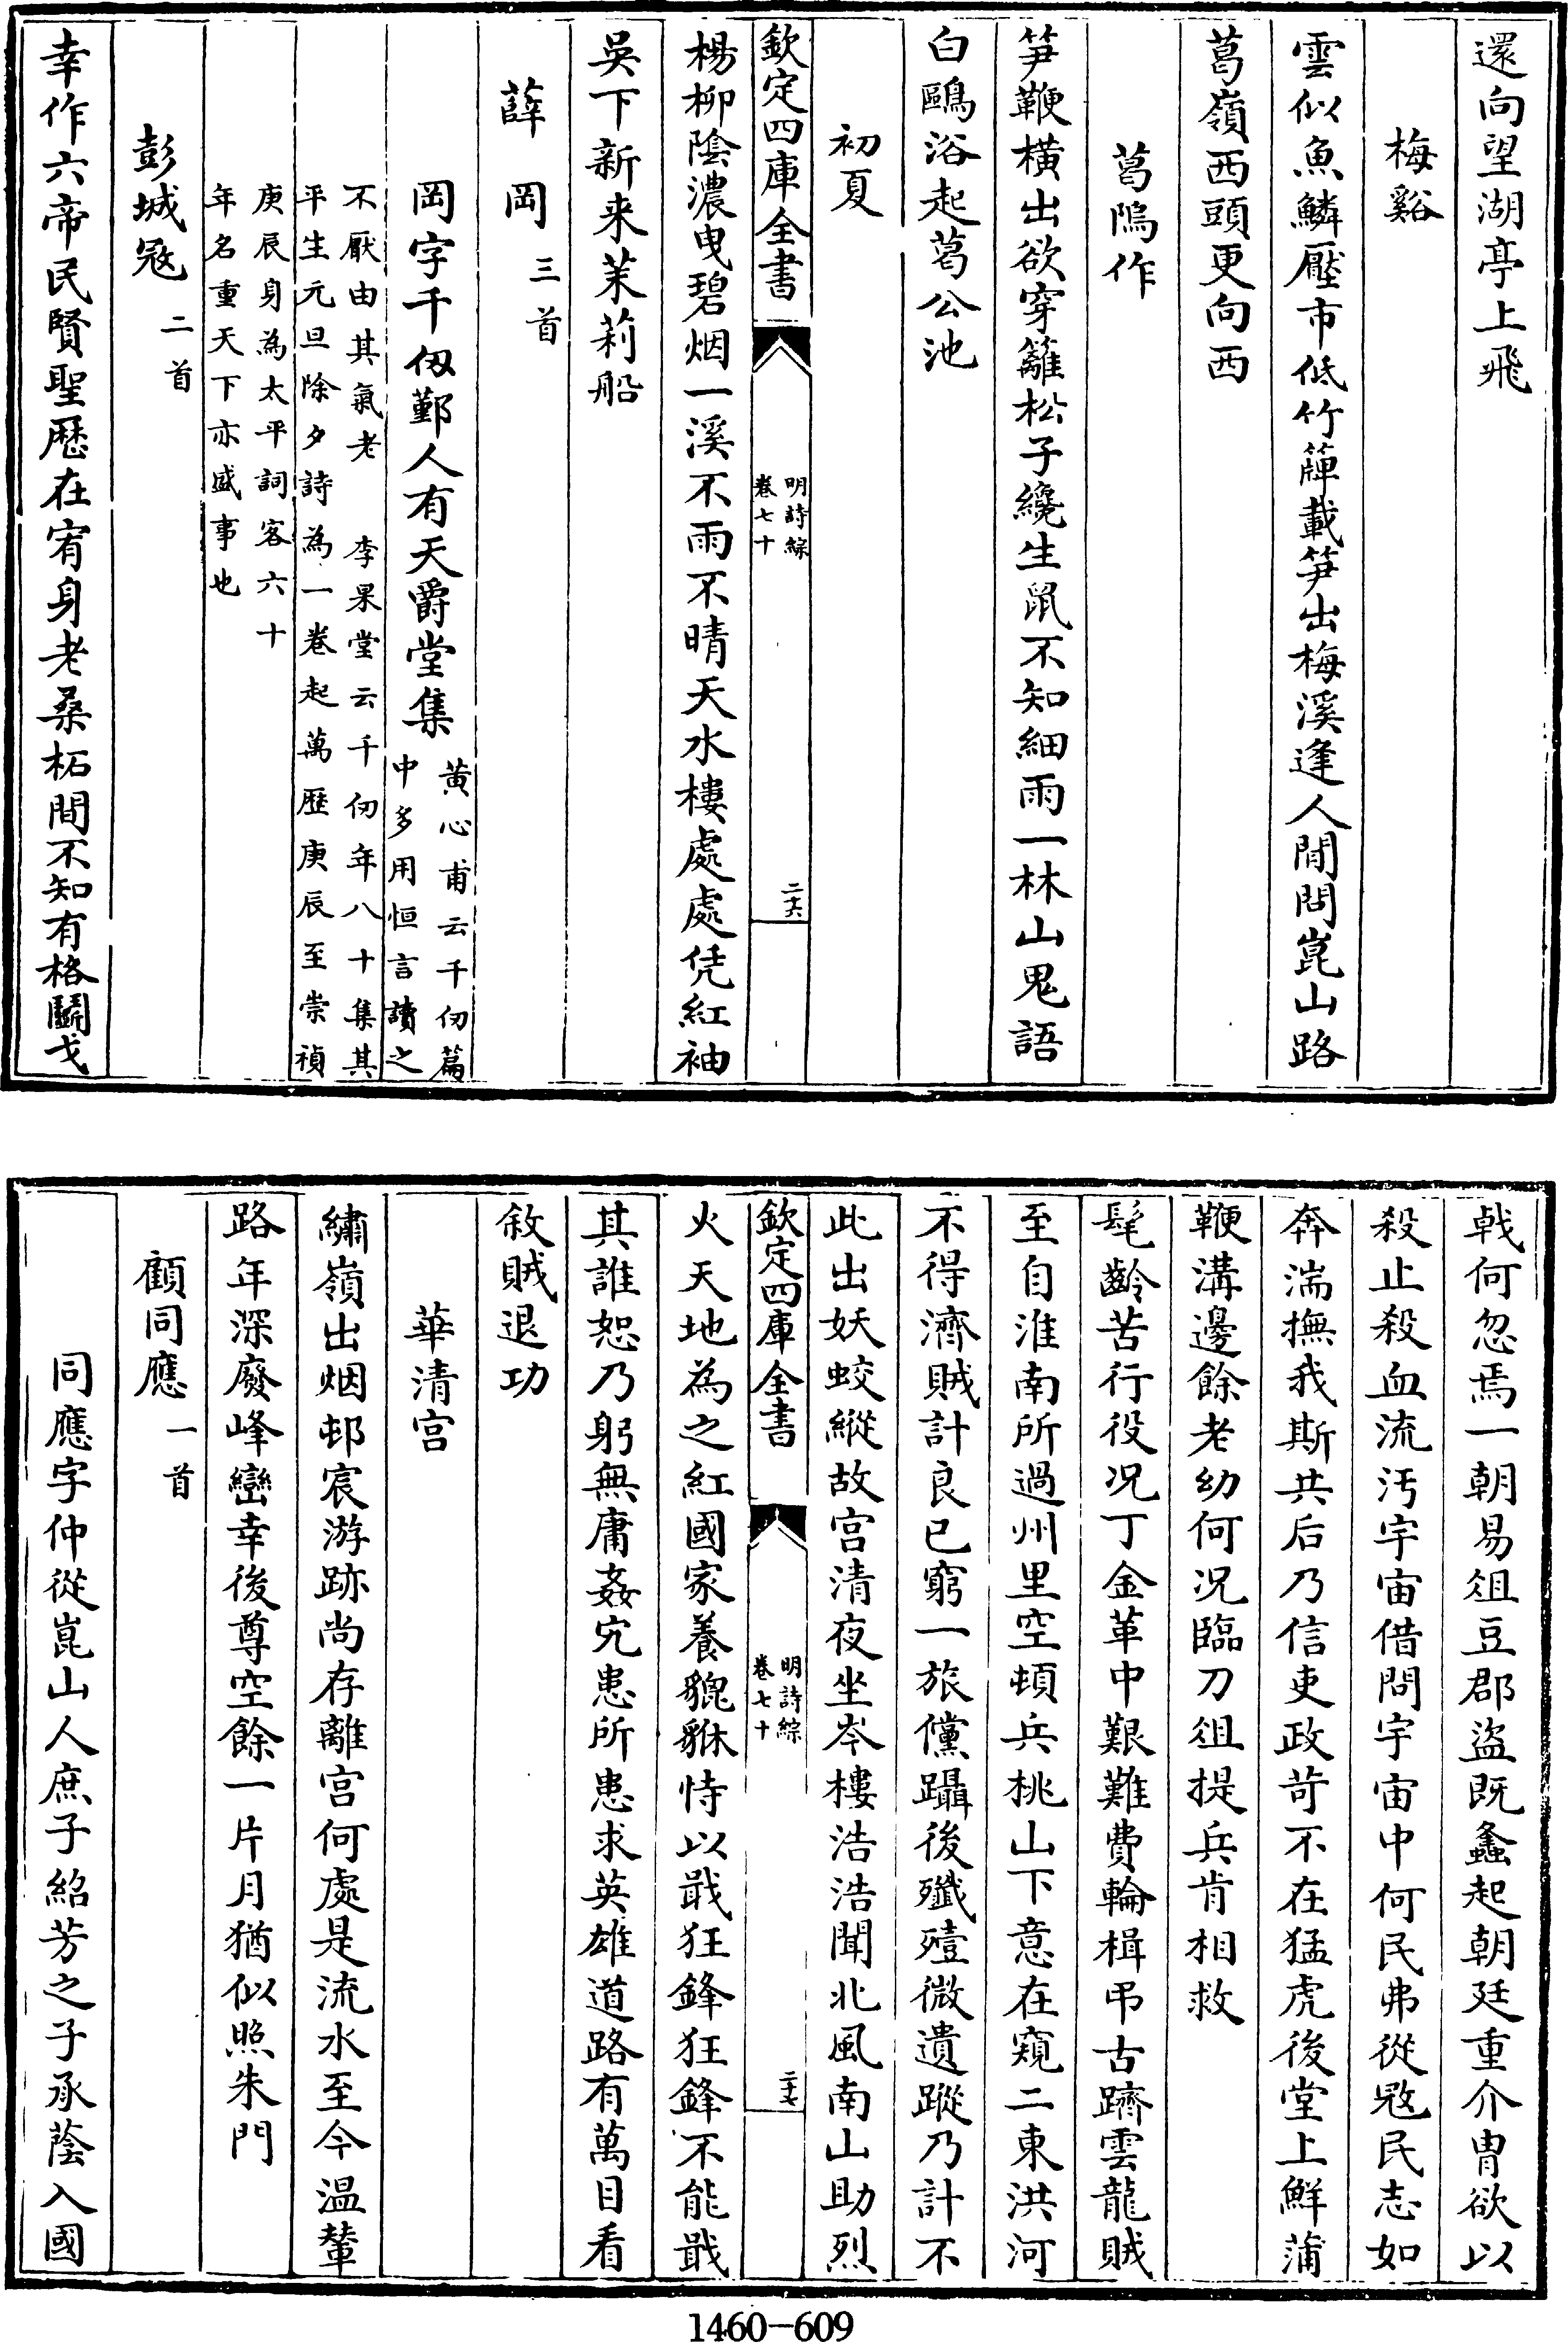 還向望湖亭上飛
梅谿
雲似魚鱗壓市低竹簰載笋出梅溪逢人閒問崑山路
葛嶺西頭更向西
葛隖作
笋鞭橫出欲穿籬松子纔生鼠不知細雨一林山鬼語
白鷗浴起葛公池
初夏
欽定四庫全書
明詩綜
卷七十
二十六
楊柳陰濃曳碧烟一溪不雨不晴天水樓處處凭紅袖
吳下新来茉莉船
薛岡三首
岡字千仭鄞人有天爵堂集
黄心甫云千仞篇
中多用恒言讀之
不厭由其氣老 李杲堂云千仞年八十集其
平生元旦除夕詩為一卷起萬厯庚辰至崇禎
庚辰身為太平詞客六十
年名重天下亦盛事也
彭城寇二首
幸作六帝民賢聖歴在宥身老桑柘間不知有格鬭戈
戟何忽焉一朝易俎豆郡盜既螽起朝廷重介胄欲以
殺止殺血流汚宇宙借問宇宙中何民弗從敺民志如
奔湍撫我斯共后乃信吏政苛不在猛虎後堂上鮮蒲
鞭溝邊餘老幼何况臨刀俎提兵肯相救
髦齡苦行役况丁金革中艱難費輪楫弔古躋雲龍賊
至自淮南所過州里空頓兵桃山下意在窺二東洪河
不得濟賊計良已窮一旅儻躡後殲殪微遺蹤乃計不
此出妖蛟縱故宫清夜坐岑樓浩浩聞北風南山助烈
欽定四庫全書
明詩綜
卷七十
二十七
火天地為之紅國家養貔貅恃以戢狂鋒狂鋒不能戢
其誰恕乃躬無庸姦宄患所患求英雄道路有萬目看
敘賊退功
華清宫
繡嶺出烟邨宸游跡尚存離宫何處是流水至今温輦
路年深廢峰巒幸後尊空餘一片月猶似照朱門
顧同應一首
同應字仲從崑山人庶子紹芳之子承蔭入國
1460-609